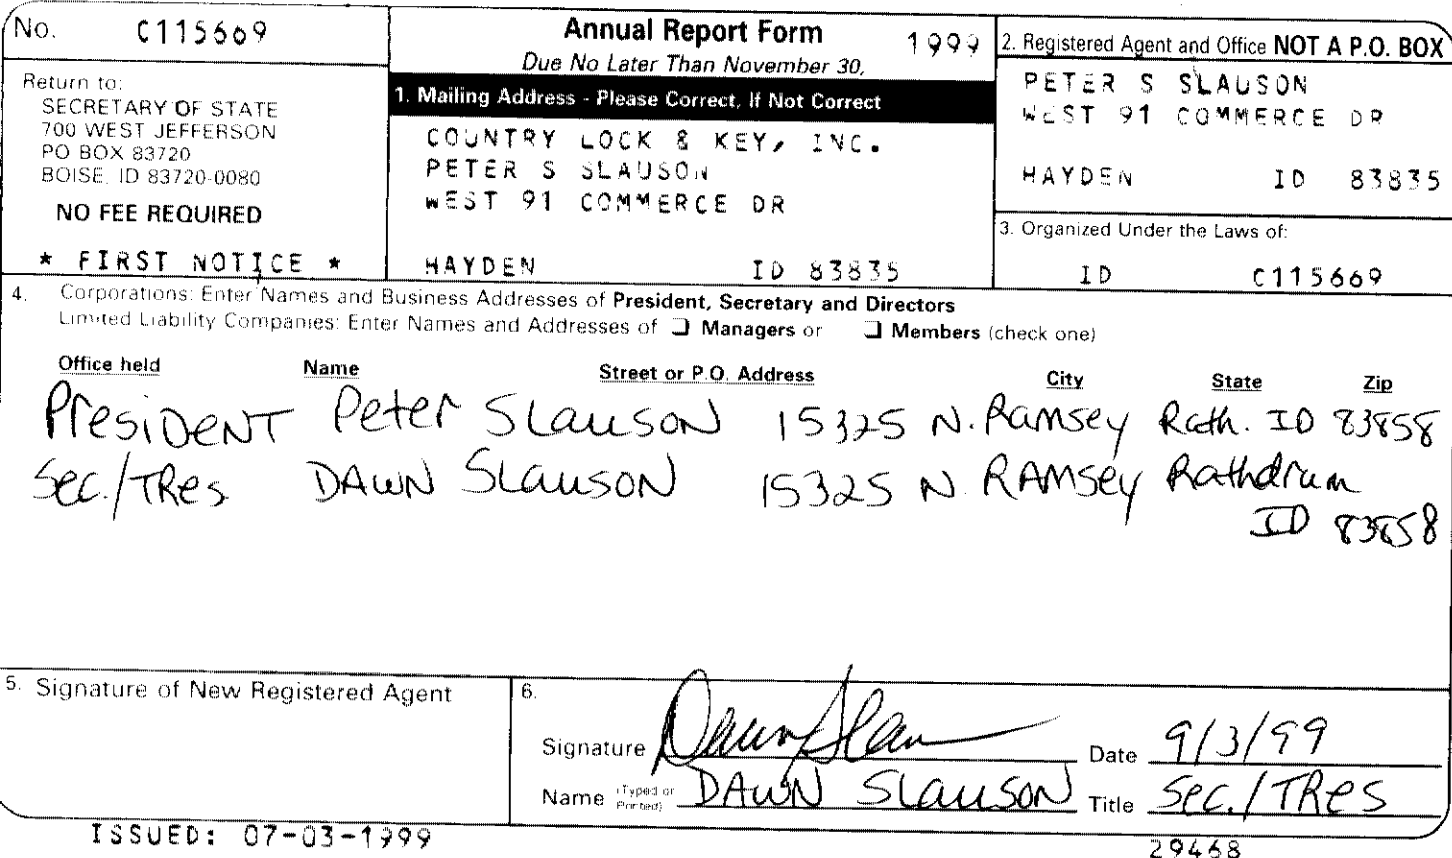 No. C115669
Return to:
SECRETARY OF STATE
700 WEST JEFFERSON
PO BOX 83720
BOISE, ID 83720-0080
NO FEE REQUIRED
* FIRST NOTICE *
Annual Report Form 1999
Due No Later Than November 30,
1. Mailing Address - Please Correct, If Not Correct
COUNTRY LOCK & KEY, INC.
PETER S SLAUSON
WEST 91 COMMERCE DR
HAYDEN ID 83835
2. Registered Agent and Office NOT A P.O. BOX
PETER S SLAUSON
WEST 91 COMMERCE DR
HAYDEN ID 83835
3. Organized Under the Laws of:
ID C115669
4. Corporations: Enter Names and Business Addresses of President, Secretary and Directors
Limited Liability Companies: Enter Names and Addresses of ❑ Managers or ❑ Members (check one)
Office held Name Street or P.O. Address City State Zip
President Peter Slauson 15325 N. Ramsey Rath. ID 83858
Sec./Tres DAWN Slauson 15325 N. RAMSey Rathdrum
ID 83858
5. Signature of New Registered Agent
6.
Signature Dawn Slau Date 9/3/99
Name (Typed or Printed) DAWN Slauson Title Sec./TRes
ISSUED: 07-03-1999
29468